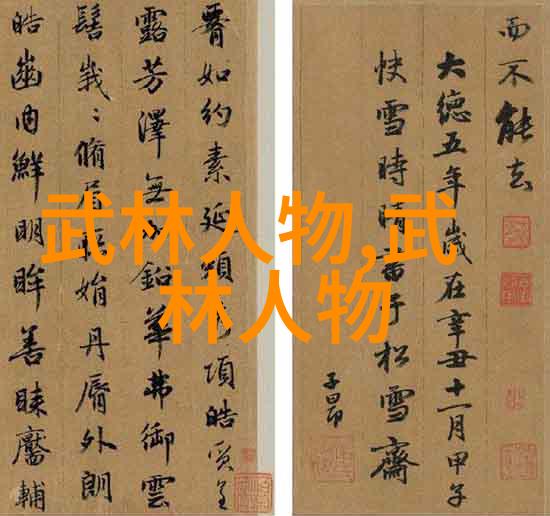 如約素延頸項皓質呈
露芳澤無加鉛華弗御雲
髻峩〻脩眉聯娟丹脣外朗
皓齒内鮮明眸善睞靨輔
而不能去
大德五年歲在辛丑十一月甲子
快雪時晴書于松雪齋
子昂
武林人物,武
林人物